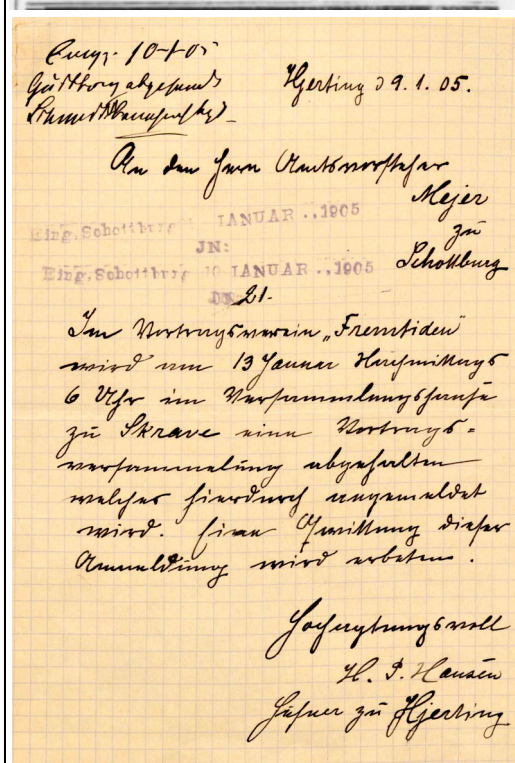 Hjerting d 9. 1. 05.
An den Herrn Amtsvorsteher
Mejer
zu
Schottburg
Eing. Schottburg JANUAR ..1905
JN:
Eing. Schottburg 10 JANUAR ..1905
JN:
21.
Im Vortragsverein „Fremtiden“
wird am 13 Januar Nachmittags
6 Uhr im Versammlungshause
zu Skrave eine Vortrags-
versammelung abgehalten
welches hierdurch angemeldet
wird. Eine Quittung dieser
Anmeldung wird erbeten.
Hochachtungsvoll
H. P. Hansen
Hufner zu Hjerting